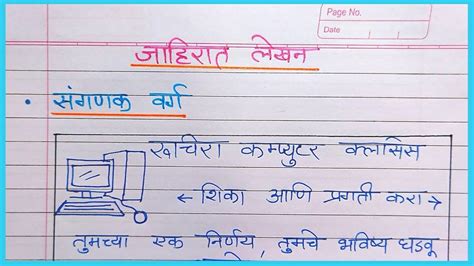 Page No.
Date
जाहिरात लेखन
• संगणक वर्ग
खाचेरा कम्प्युटर क्लासिस
← शिका आणि प्रगती करा →
तुमच्या एक निर्णय, तुमचे भविष्य घडवू